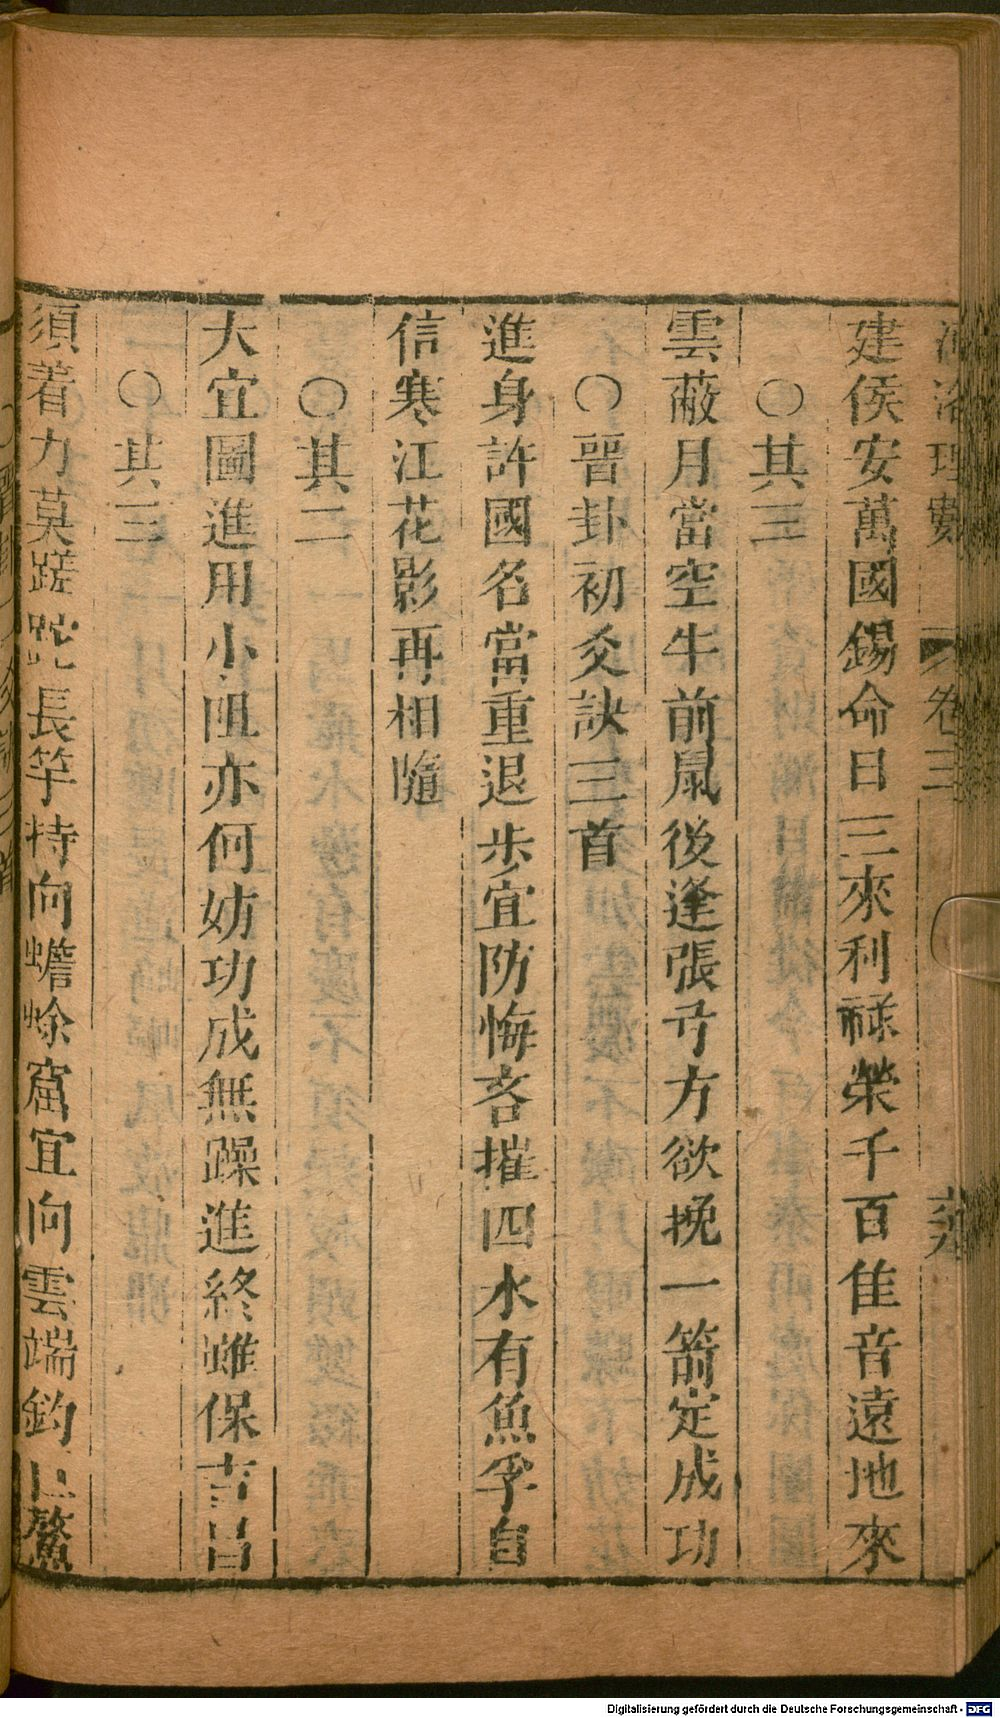 河洛理數 卷三
建侯安萬國錫命日三來利祿榮千百佳音遠地來
〇其三
雲蔽月當空牛前鼠後逢張弓方欲挽一箭定成功
〇晉卦初爻訣三首
進身許國名當重退步宜防悔吝摧四水有魚孚自
信寒江花影再相隨
〇其二
大宜圖進用小阻亦何妨功成無躁進終雖保吉昌
〇其三
須着力莫蹉跎長竿持向蟾蜍窟宜向雲端釣巨鰲
Digitalisierung gefördert durch die Deutsche Forschungsgemeinschaft - DFG